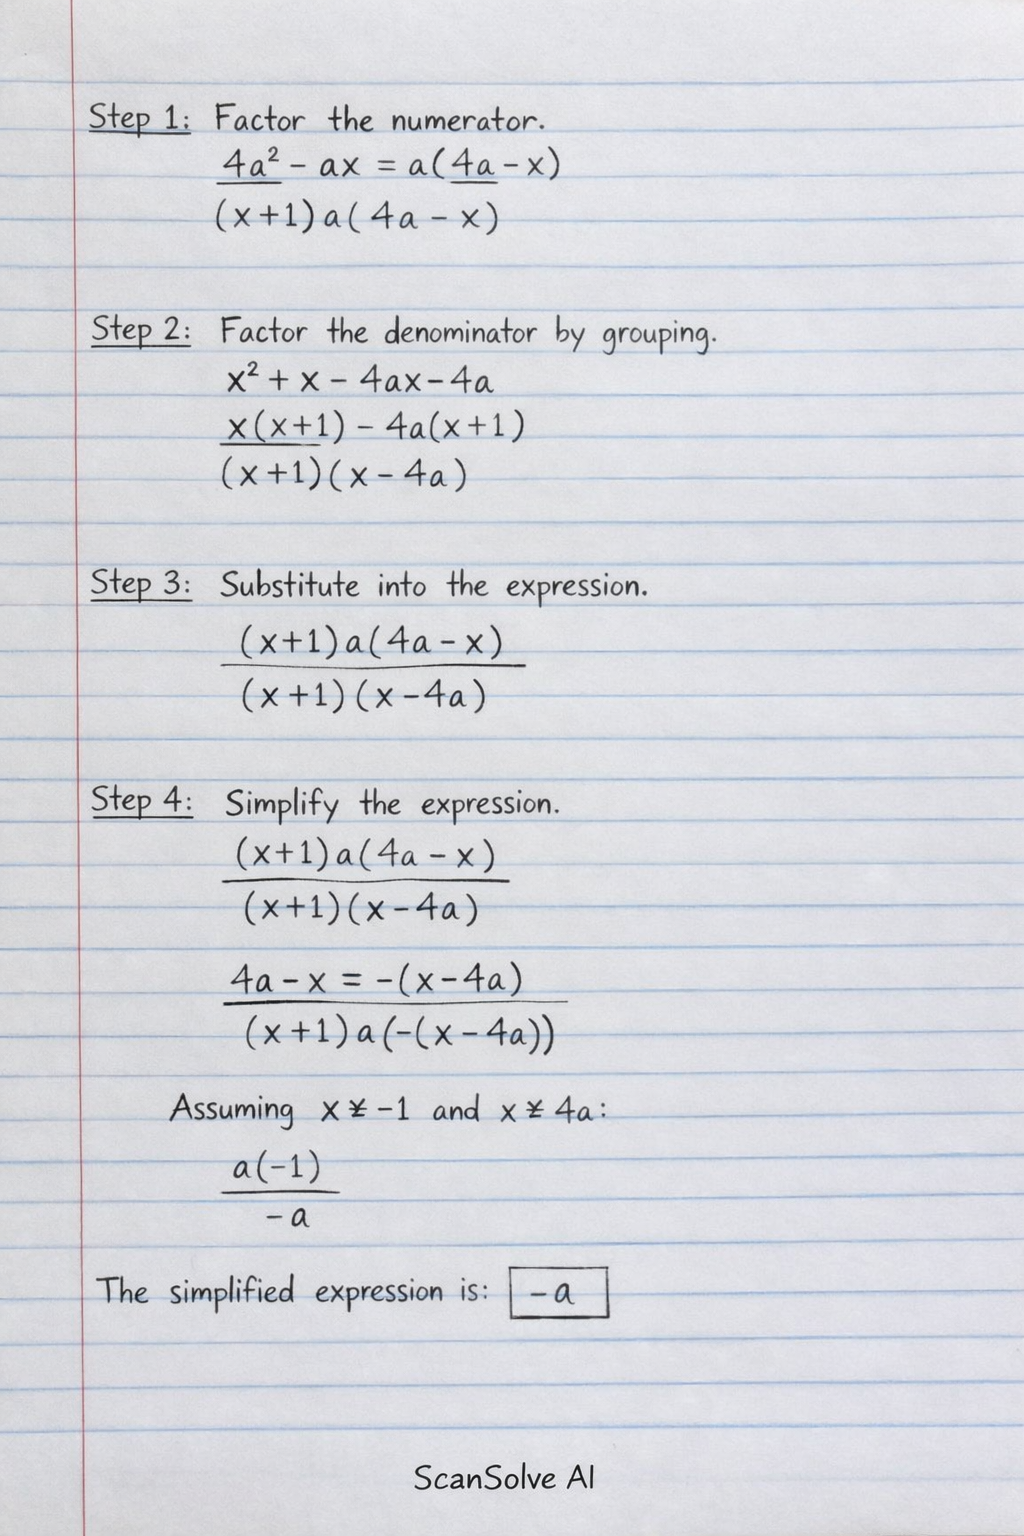 Step 1: Factor the numerator.
4a² - ax = a(4a - x)
(x+1)a(4a - x)
Step 2: Factor the denominator by grouping.
x² + x - 4ax - 4a
x(x+1) - 4a(x+1)
(x+1)(x - 4a)
Step 3: Substitute into the expression.
(x+1)a(4a - x)
(x+1)(x - 4a)
Step 4: Simplify the expression.
(x+1)a(4a - x)
(x+1)(x - 4a)
4a - x = -(x - 4a)
(x+1)a(-(x - 4a))
Assuming x ≠ -1 and x ≠ 4a:
a(-1)
-a
The simplified expression is: -a
ScanSolve AI